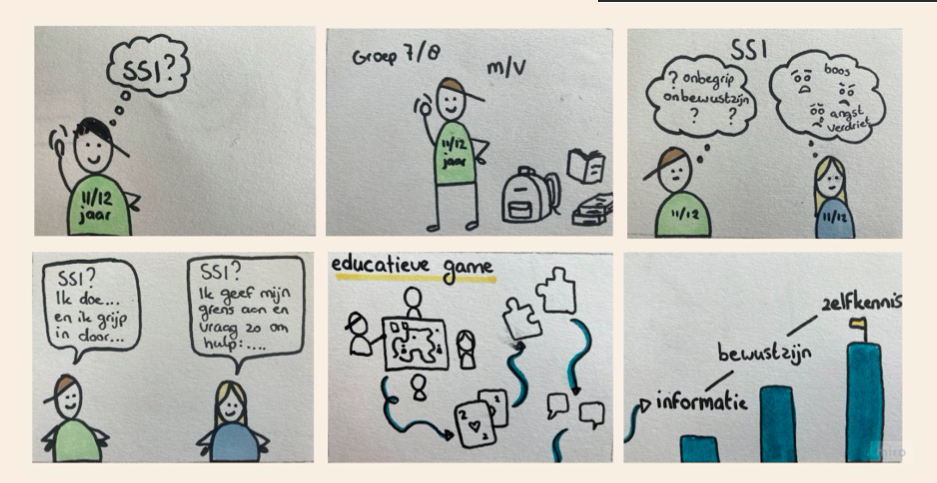 SSI?
11/12
jaar
Groep 7/8
m/V
11/12
jaar
SSI
? onbegrip
onbewustzijn
? ?
boos
angst
verdriet
11/12
11/12
SSI?
Ik doe...
en ik grijp
in door...
SSI?
Ik geef mijn
grens aan en
vraag zo om
hulp:....
educatieve game
2
2
2
zelfkennis
bewustzijn
informatie
miro